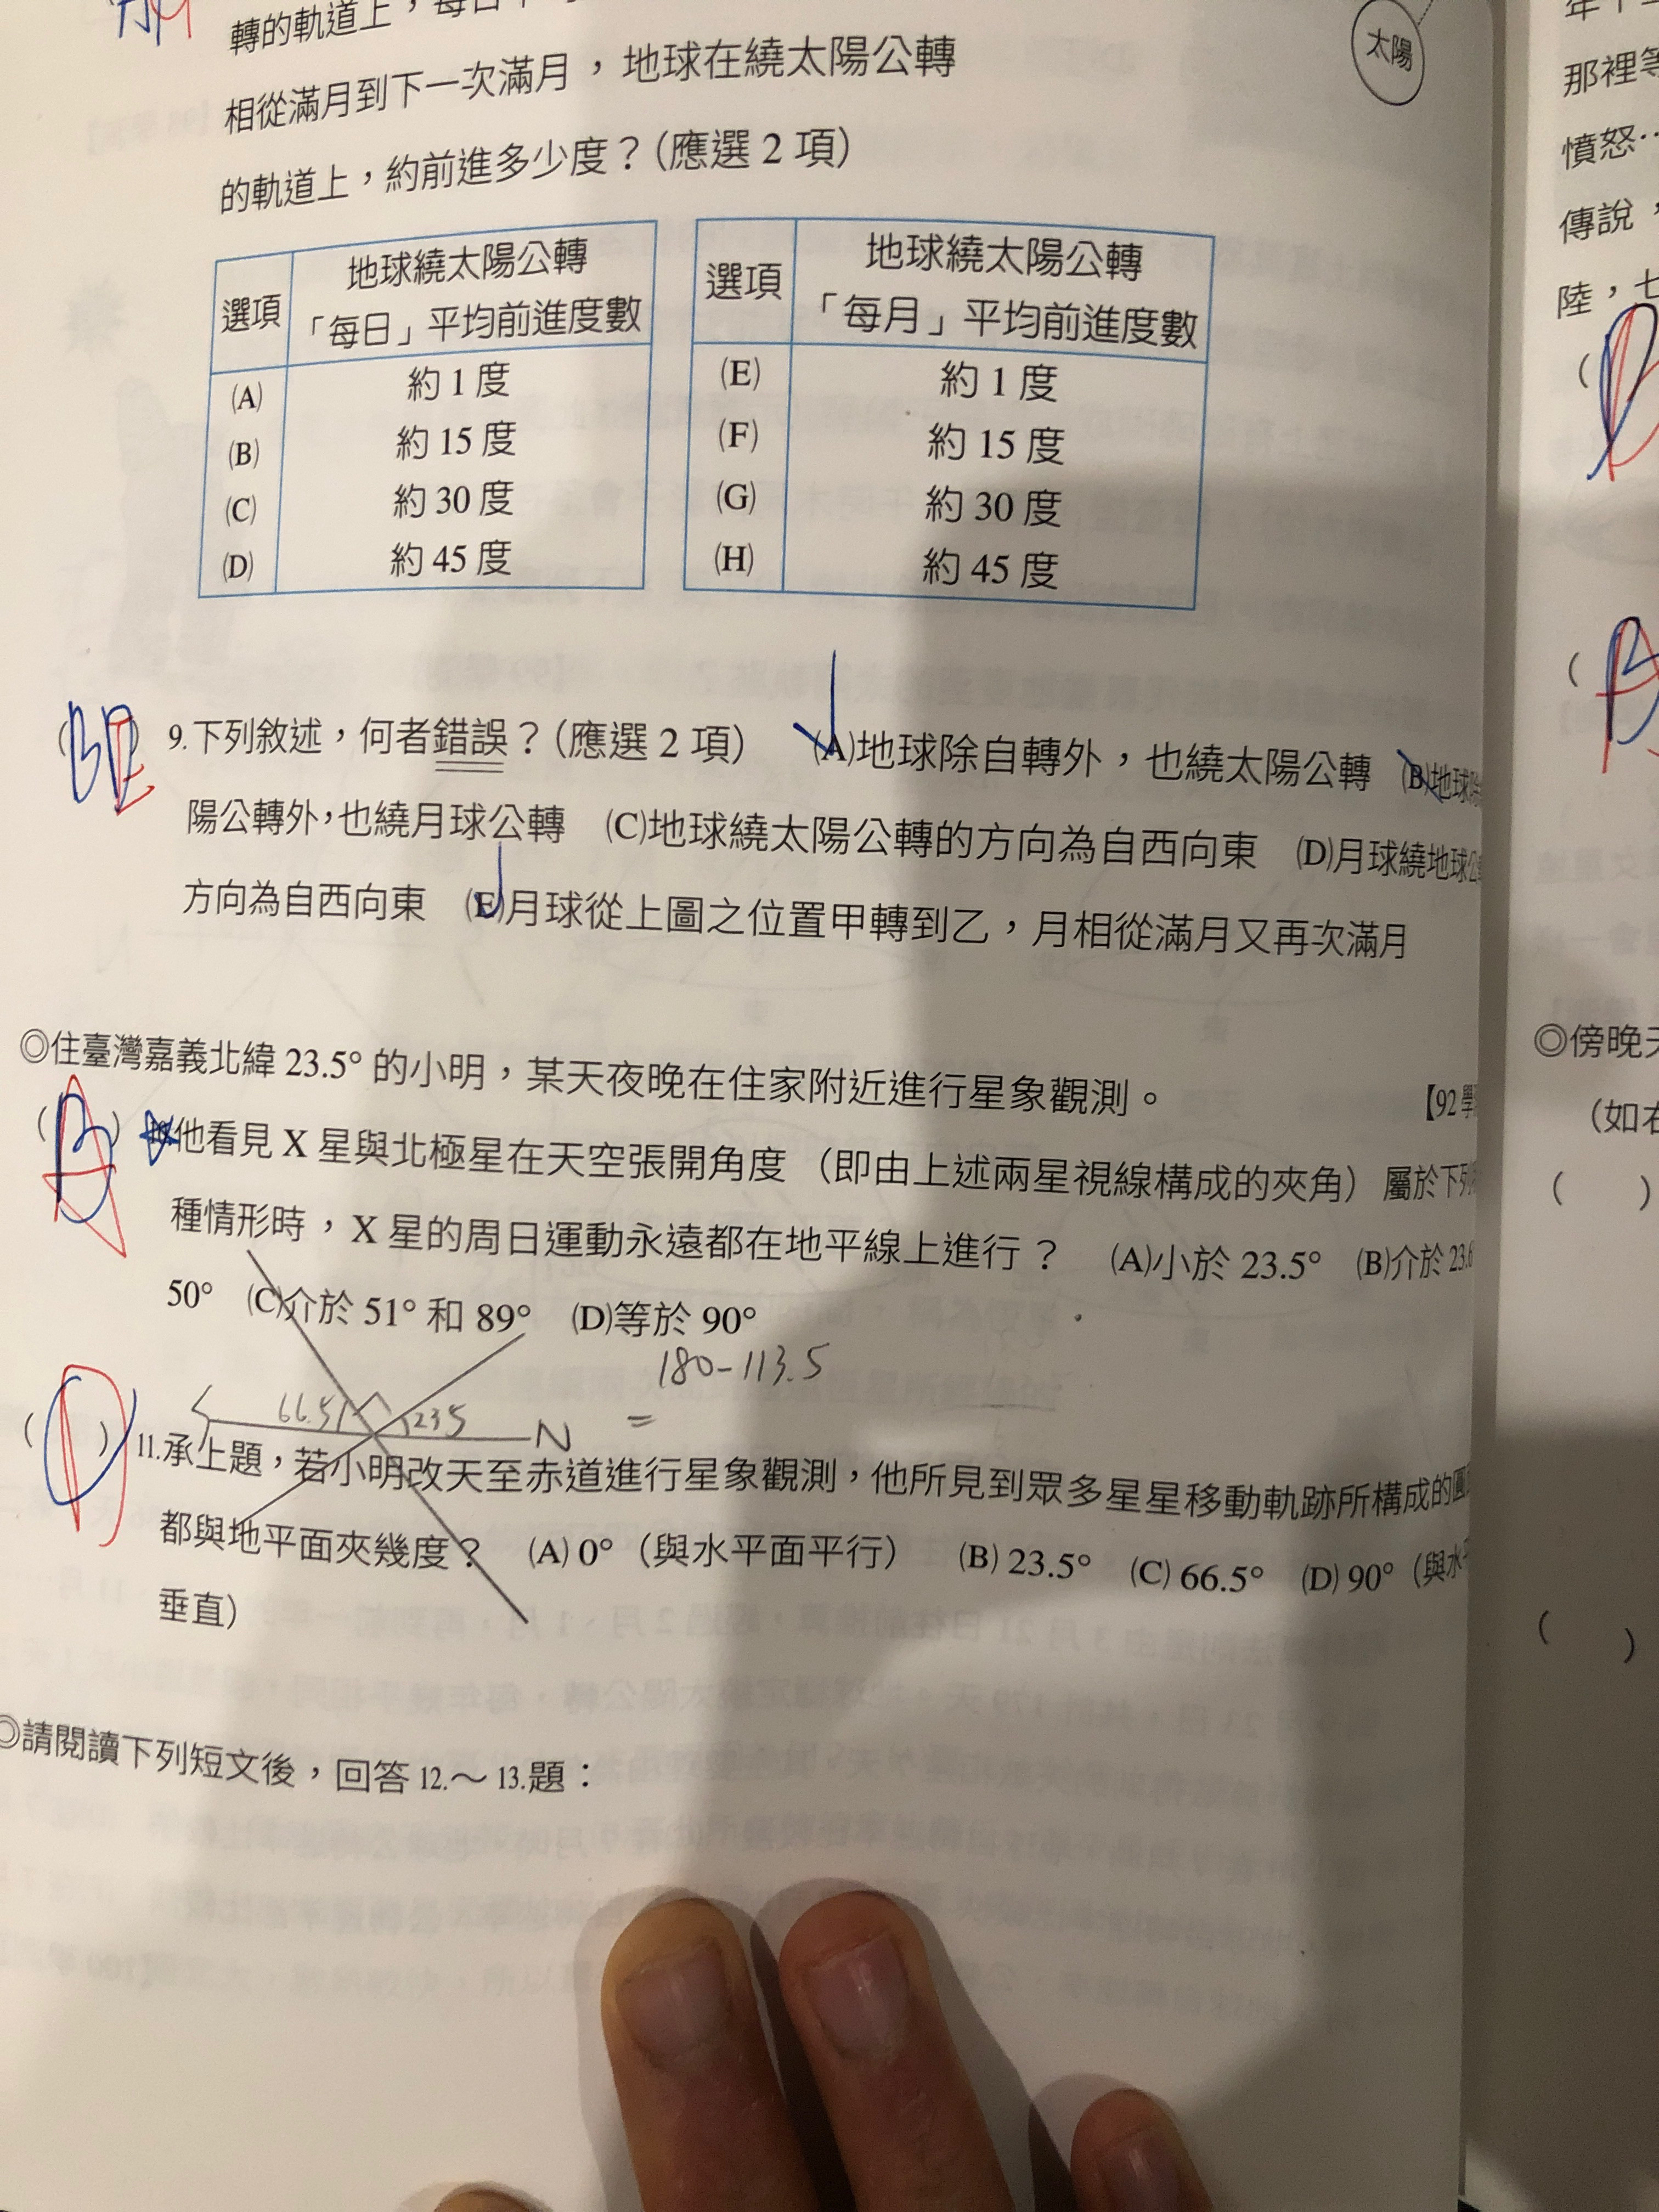 轉的軌道上，每日
相從滿月到下一次滿月，地球在繞太陽公轉
的軌道上，約前進多少度？（應選 2 項）
太陽
選項 地球繞太陽公轉「每日」平均前進度數
(A) 約 1 度
(B) 約 15 度
(C) 約 30 度
(D) 約 45 度
選項 地球繞太陽公轉「每月」平均前進度數
(E) 約 1 度
(F) 約 15 度
(G) 約 30 度
(H) 約 45 度
BE
9.下列敘述，何者錯誤？（應選 2 項） (A)地球除自轉外，也繞太陽公轉 (B)地球除
陽公轉外，也繞月球公轉 (C)地球繞太陽公轉的方向為自西向東 (D)月球繞地球公
方向為自西向東 (E)月球從上圖之位置甲轉到乙，月相從滿月又再次滿月
◎住臺灣嘉義北緯 23.5° 的小明，某天夜晚在住家附近進行星象觀測。
【92 學
B A
他看見 X 星與北極星在天空張開角度（即由上述兩星視線構成的夾角）屬於下列
種情形時，X 星的周日運動永遠都在地平線上進行？ (A)小於 23.5° (B)介於 23.6
50° (C)介於 51° 和 89° (D)等於 90°
180-113.5
=
66.5
23.5
N
D
11.承上題，若小明改天至赤道進行星象觀測，他所見到眾多星星移動軌跡所構成的圓
都與地平面夾幾度？ (A) 0°（與水平面平行） (B) 23.5° (C) 66.5° (D) 90°（與水平
垂直）
◎請閱讀下列短文後，回答 12.～ 13.題：
那裡等
憤怒…
傳說，
陸，七
(
B
(
◎傍晚天
（如右
( )
( )